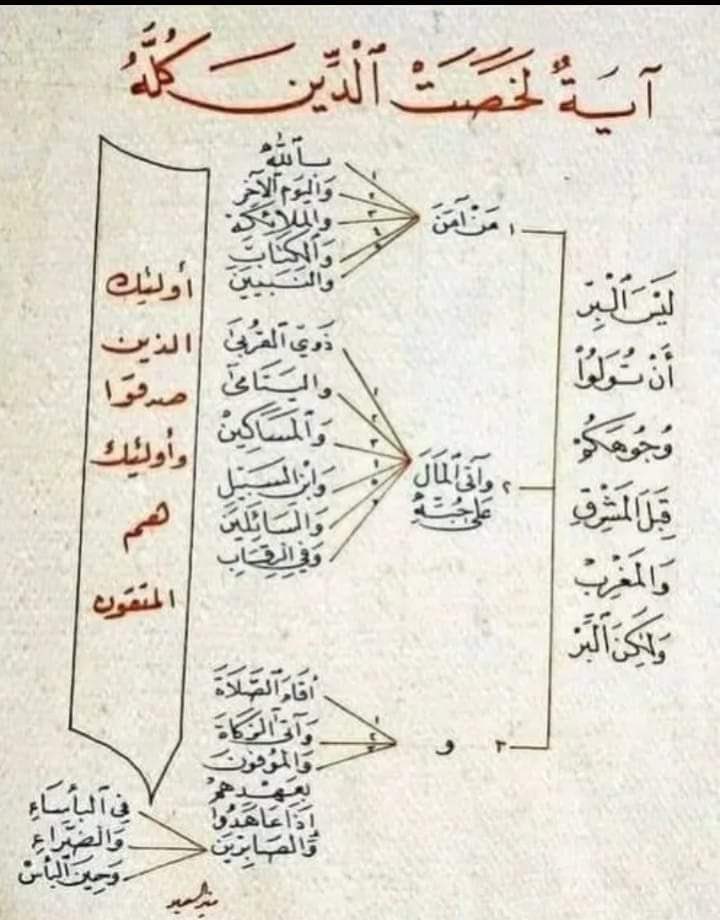 آيَةٌ لَخَّصَتْ ٱلْدِّينَ كُلَّهُ
لَيْسَ ٱلْبِرَّ
أَنْ تُوَلُّوا
وُجُوهَكُمْ
قِبَلَ ٱلمَشْرِقِ
وَٱلمَغْرِبِ
وَلَكِنَّ ٱلْبِرَّ
١ مَنْ آمَنَ
١ بِٱللَّهِ
٢ وَٱليَوْمِ ٱلآخِرِ
٣ وَٱلمَلَائِكَةِ
٤ وَٱلكِتَابِ
٥ وَٱلنَّبِيِّينَ
٢ وَآتَى ٱلمَالَ
عَلَى حُبِّهِ
١ ذَوِي ٱلقُرْبَى
٢ وَٱليَتَامَى
٣ وَٱلمَسَاكِينَ
٤ وَٱبْنَ ٱلسَّبِيلِ
٥ وَٱلسَّائِلِينَ
٦ وَفِي ٱلرِّقَابِ
٣ و
١ أَقَامَ ٱلصَّلَاةَ
٢ وَآتَى ٱلزَّكَاةَ
٣ وَٱلمُوفُونَ
بِعَهْدِهِمْ
إِذَا عَاهَدُوا
وَٱلصَّابِرِينَ
فِي ٱلبَأْسَاءِ
وَٱلضَّرَّاءِ
وَحِينَ ٱلبَأْسِ
أولئِك
الذين
صدقوا
وأولئِك
هم
المتقون